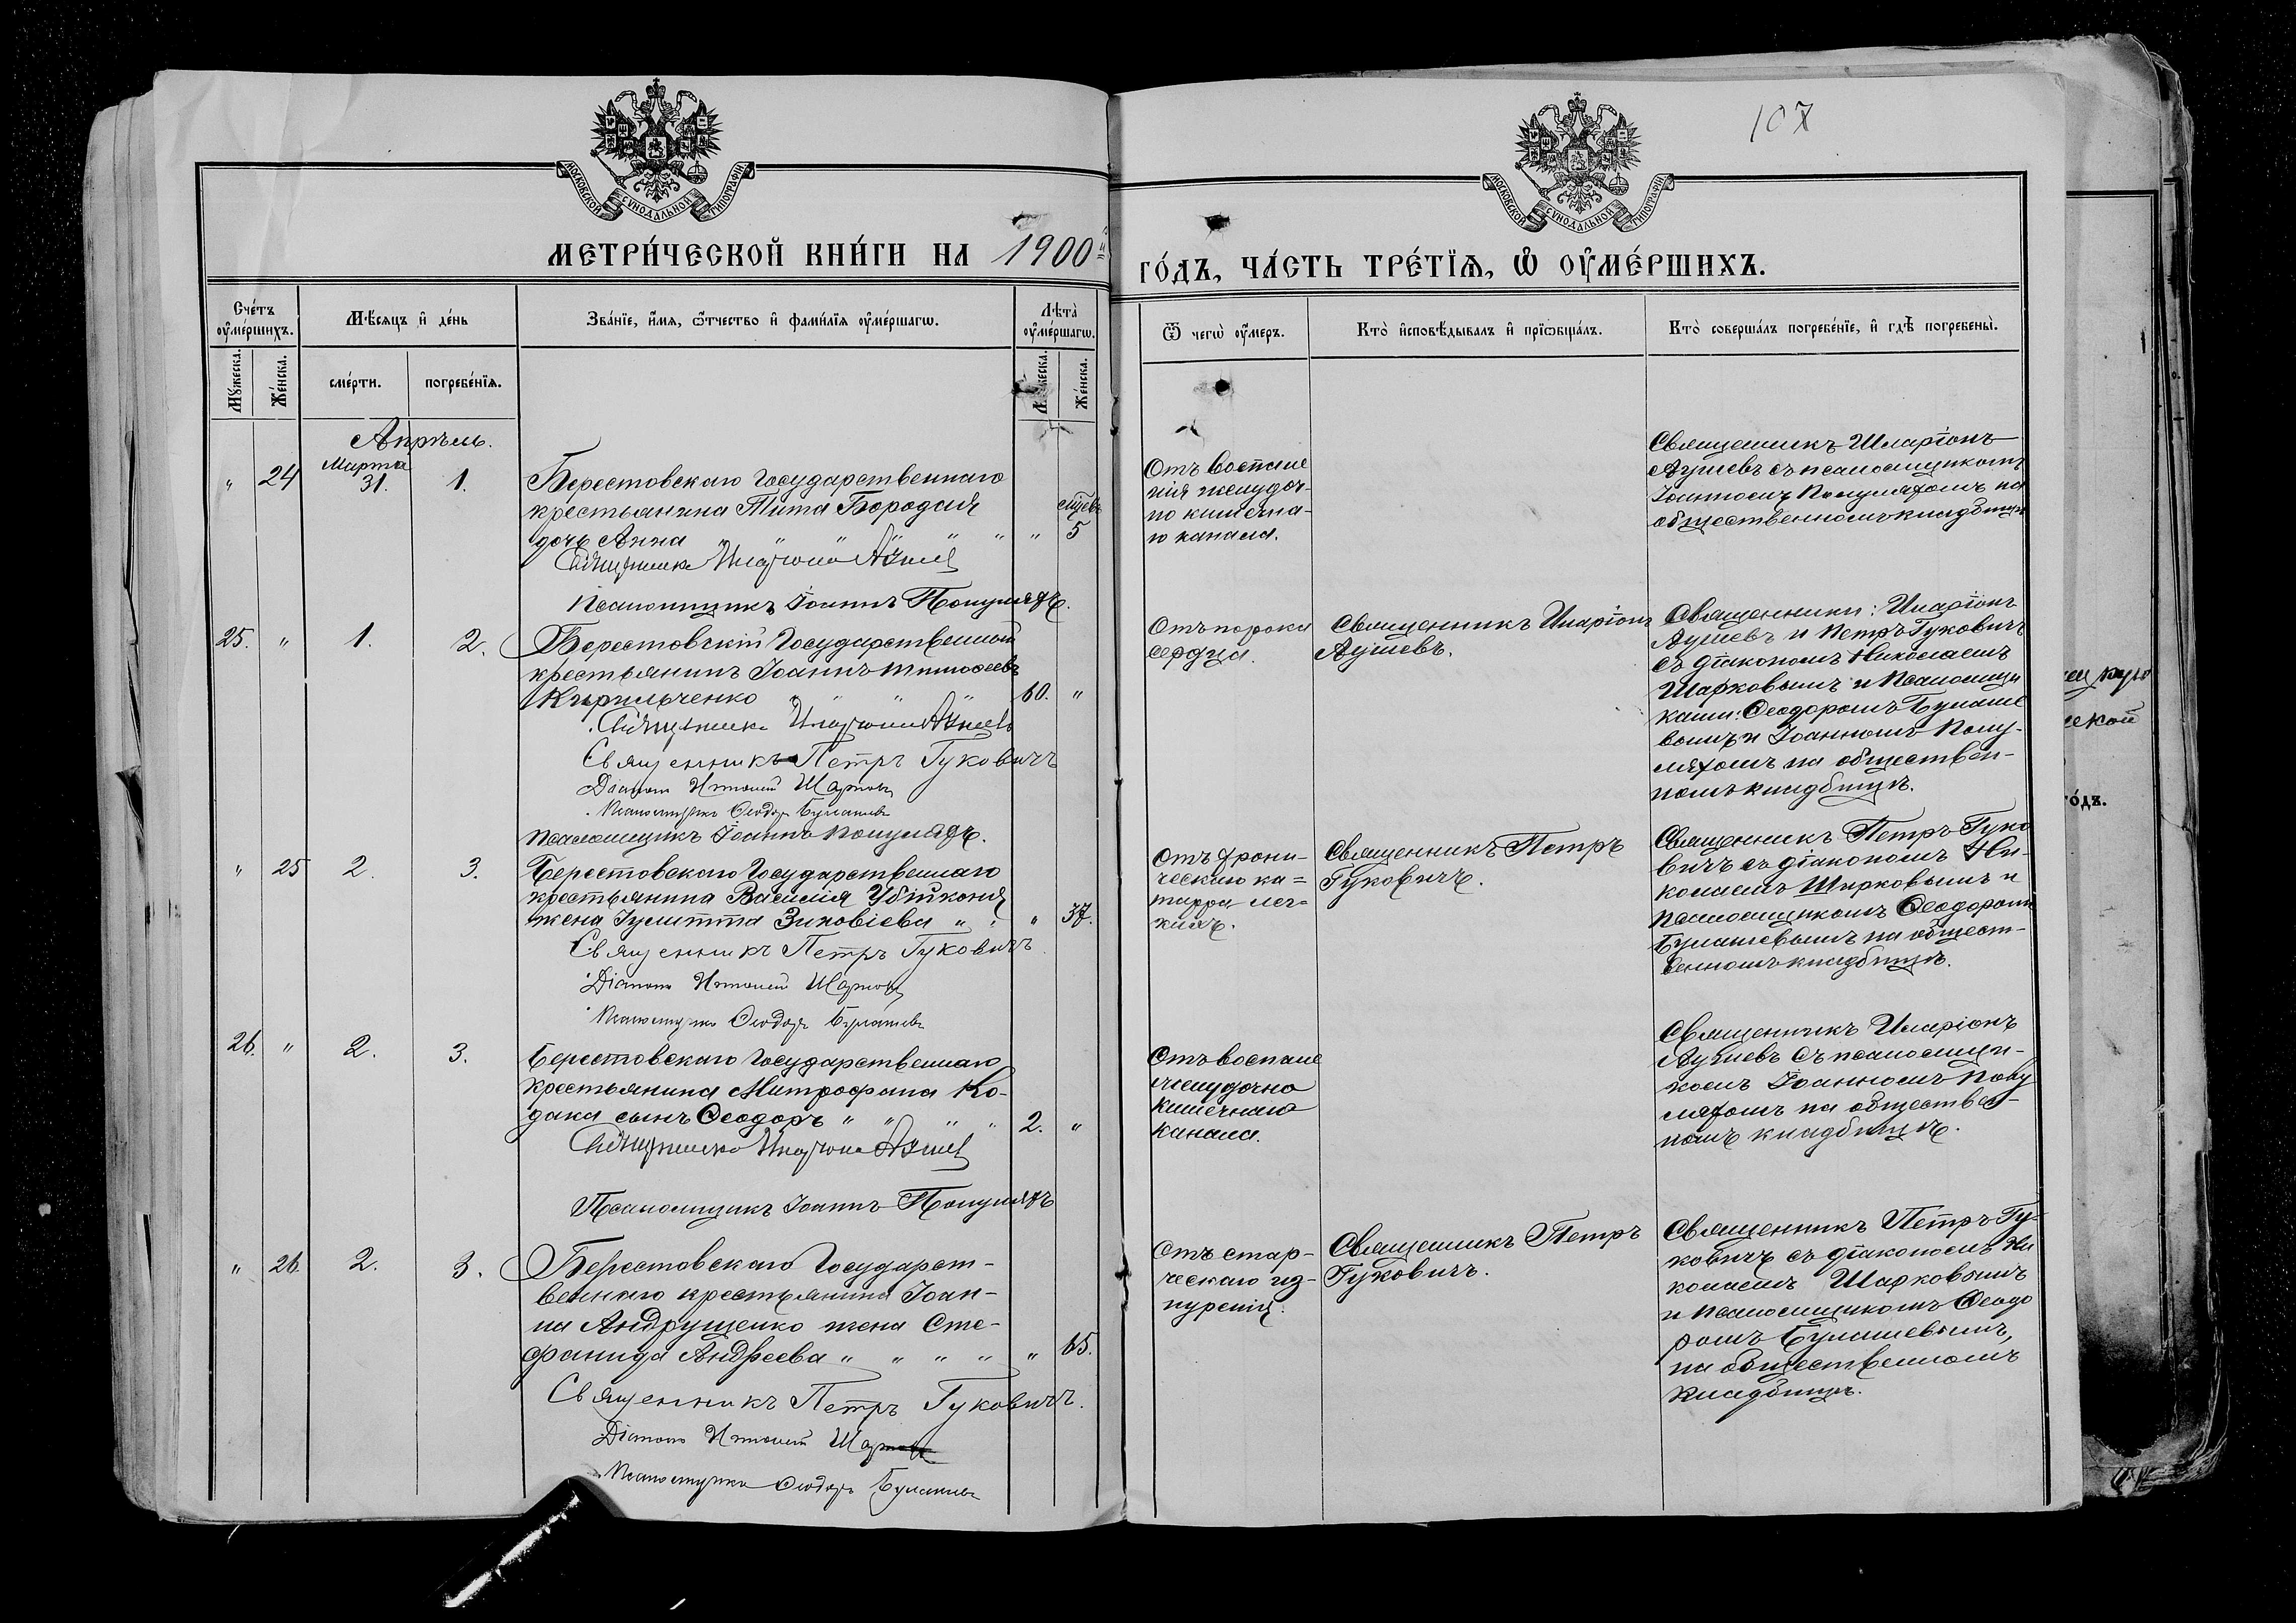 107
МОСКОВСКОЙ СѴНОДАЛЬНОЙ ТИПОГРАФІИ
МОСКОВСКОЙ СѴНОДАЛЬНОЙ ТИПОГРАФІИ
МЕТРИ́ЧЕСКОЙ КНИ́ГИ НА 1900й
ГО́ДЪ, ЧА́СТЬ ТРЕ́ТІѦ, Ѡ ОУМЕ́РШИХЪ.
Сче́тъ оуме́ршихъ.
Мѣ́сяцъ и де́нь
Зва́нїе, и́мя, ѿтчество и фами́лїя оуме́ршагѡ.
Лѣта̀ оуме́ршагѡ.
Ѿ чегѡ̀ оу́меръ.
Кто̀ исповѣ́дывалъ и прїѡбща́лъ.
Кто̀ соверша́лъ погребе́нїе, и гдѣ̀ погребены̀.
Му́жеска.
Же́нска.
сме́рти.
погребе́нїя.
Же́нска.
Апрѣль.
" 24
Марта
31.
1.
Берестовскаго Государственнаго
крестьянина Тита Бородая
дочь Анна " " " "
" мѣсяц. 5
Священникъ Иларіонъ Аушевъ
Псаломщикъ Іоаннъ Популяхъ.
Отъ воспале
нія желудоч-
но кишечна-
го канала.
Священникъ Иларіонъ
Аушевъ съ псаломщикомъ
Іоанномъ Популяхомъ на
общественномъ кладбищѣ
25. "
1.
2.
Берестовскій Государственный
крестьянинъ Іоаннъ Тимофеевъ
Кирильченко " " " "
60. "
Священникъ Иларіонъ Аушевъ
Священникъ Петръ Гуковичъ
Діаконъ Николай Шарковъ
Псаломщикъ Ѳеодоръ Булашевъ
Псаломщикъ Іоаннъ Популяхъ.
Отъ порока
сердца.
Священникъ Иларіонъ
Аушевъ.
Священники: Иларіонъ
Аушевъ и Петръ Гуковичъ
съ діакономъ Николаемъ
Шарковымъ и Псаломщи
ками: Ѳеодоромъ Булаше
вымъ и Іоанномъ Попу-
ляхомъ на обществен-
номъ кладбищѣ.
" 25
2.
3.
Берестовскаго Государственнаго
крестьянина Василія Убійконя
жена Гулитта Зиновіева " "
" 37.
Священникъ Петръ Гуковичъ
Діаконъ Николай Шарковъ
Псаломщикъ Ѳеодоръ Булашевъ
Отъ хрони-
ческаго ка=
тарра лег=
кихъ.
Священникъ Петръ
Гуковичъ.
Священникъ Петръ Гуко
вичъ съ діакономъ Ни-
колаемъ Шарковымъ и
псаломщикомъ Ѳеодоромъ
Булашевымъ на общест-
венномъ кладбищѣ.
26. "
2.
3.
Берестовскаго Государственнаго
крестьянина Митрофана Ко-
дака сынъ Ѳеодоръ " " " "
2. "
Священникъ Иларіонъ Аушевъ
Псаломщикъ Іоаннъ Популяхъ
Отъ воспале
желудочно
кишечнаго
канала.
Священникъ Иларіонъ
Аушевъ съ псаломщи-
комъ Іоанномъ Попу
ляхомъ на обществен-
номъ кладбищѣ.
" 26.
2.
3.
Берестовскаго Государст-
веннаго крестьянина Іоан-
на Андрущенко жена Сте-
фанида Андреева " " " "
" 65.
Священникъ Петръ Гуковичъ.
Діаконъ Николай Шарковъ
Псаломщикъ Ѳеодоръ Булашевъ
Отъ стар-
ческаго из-
нуренія.
Священникъ Петръ
Гуковичъ.
Священникъ Петръ Гу-
ковичъ съ діакономъ Ни
колаемъ Шарковымъ
и псаломщикомъ Ѳеодо
ромъ Булашевымъ,
на общественномъ
кладбищѣ.
ской
го́дъ.